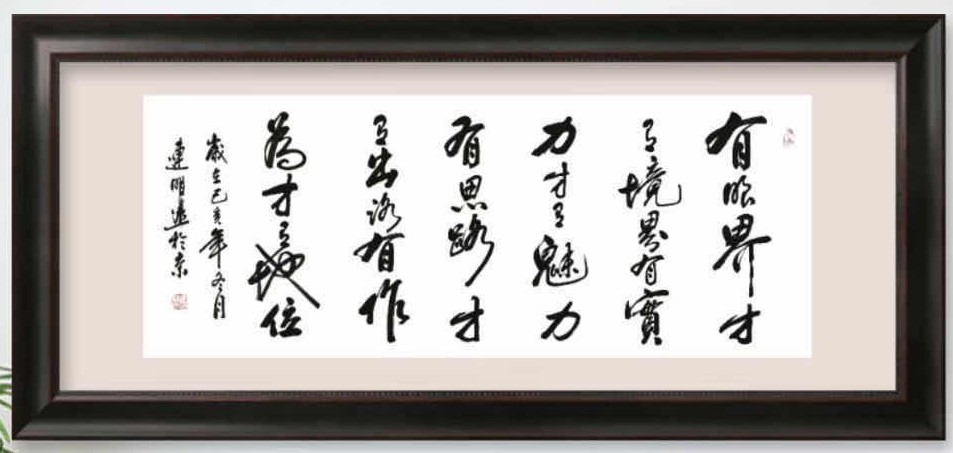 有眼界才
有境界有實
力才有魅力
有思路才
有出路有作
為才有地位
歲在己亥年冬月
連明遠於京